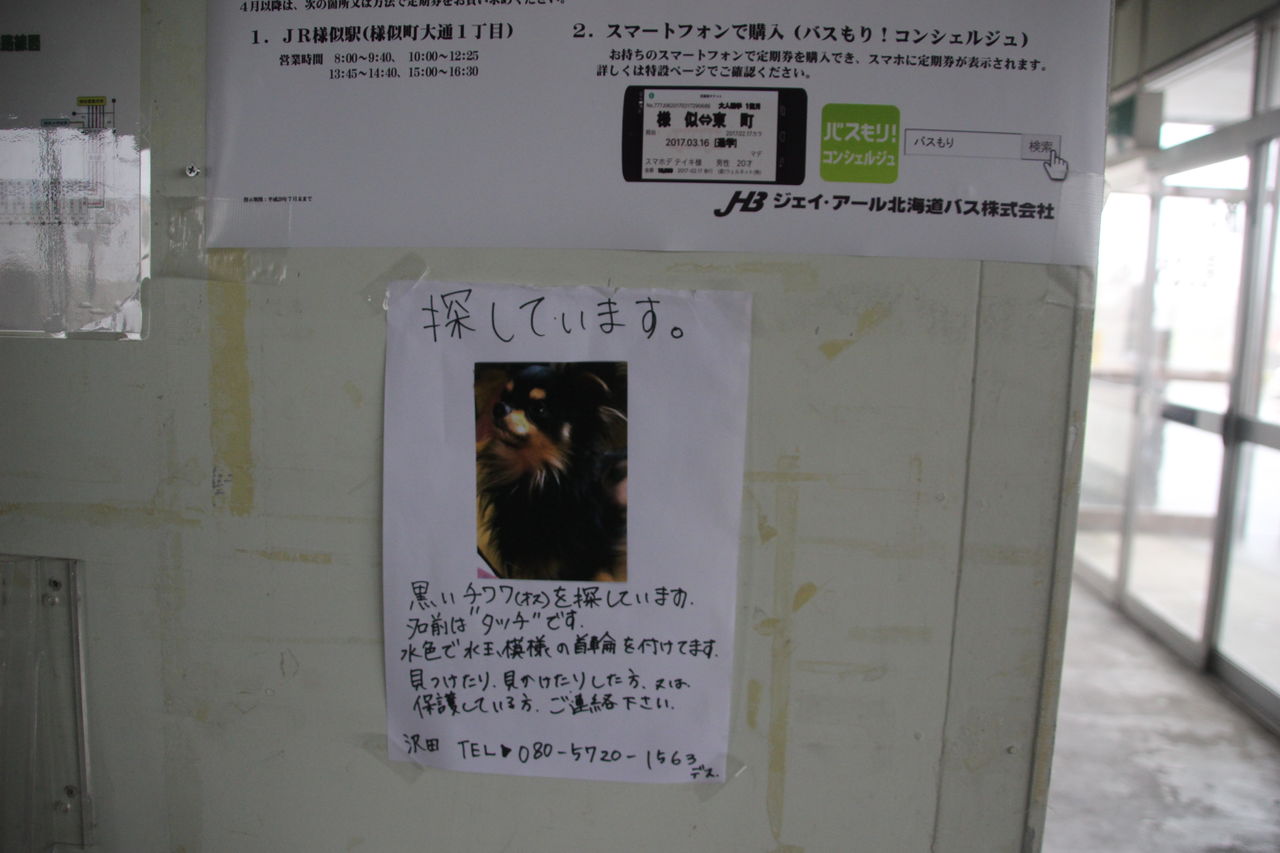 4月以降は、次の箇所又は方法で定期券をお買い求めください。
1．ＪＲ様似駅(様似町大通１丁目)
営業時間　8:00～9:40、 10:00～12:25
13:45～14:40、15:00～16:30
2．スマートフォンで購入（バスもり！コンシェルジュ）
お持ちのスマートフォンで定期券を購入でき、スマホに定期券が表示されます。
詳しくは特設ページでご確認ください。
大人通学 1箇月
様 似⇔東 町
経由 2017.02.17カラ
2017.03.16 [通学]
マデ
スマホデ テイキ様 男性 20才
バスもり!
コンシェルジュ
バスもり 検索
JHB ジェイ・アール北海道バス株式会社
路線図
探しています。
黒いチワワ(オス)を探しています.
名前は"タッチ"です.
水色で水玉模様の首輪を付けてます.
見つけたり、見かけたりした方、又は
保護している方、ご連絡下さい.
沢田 TEL▶080-5720-1563
デス.